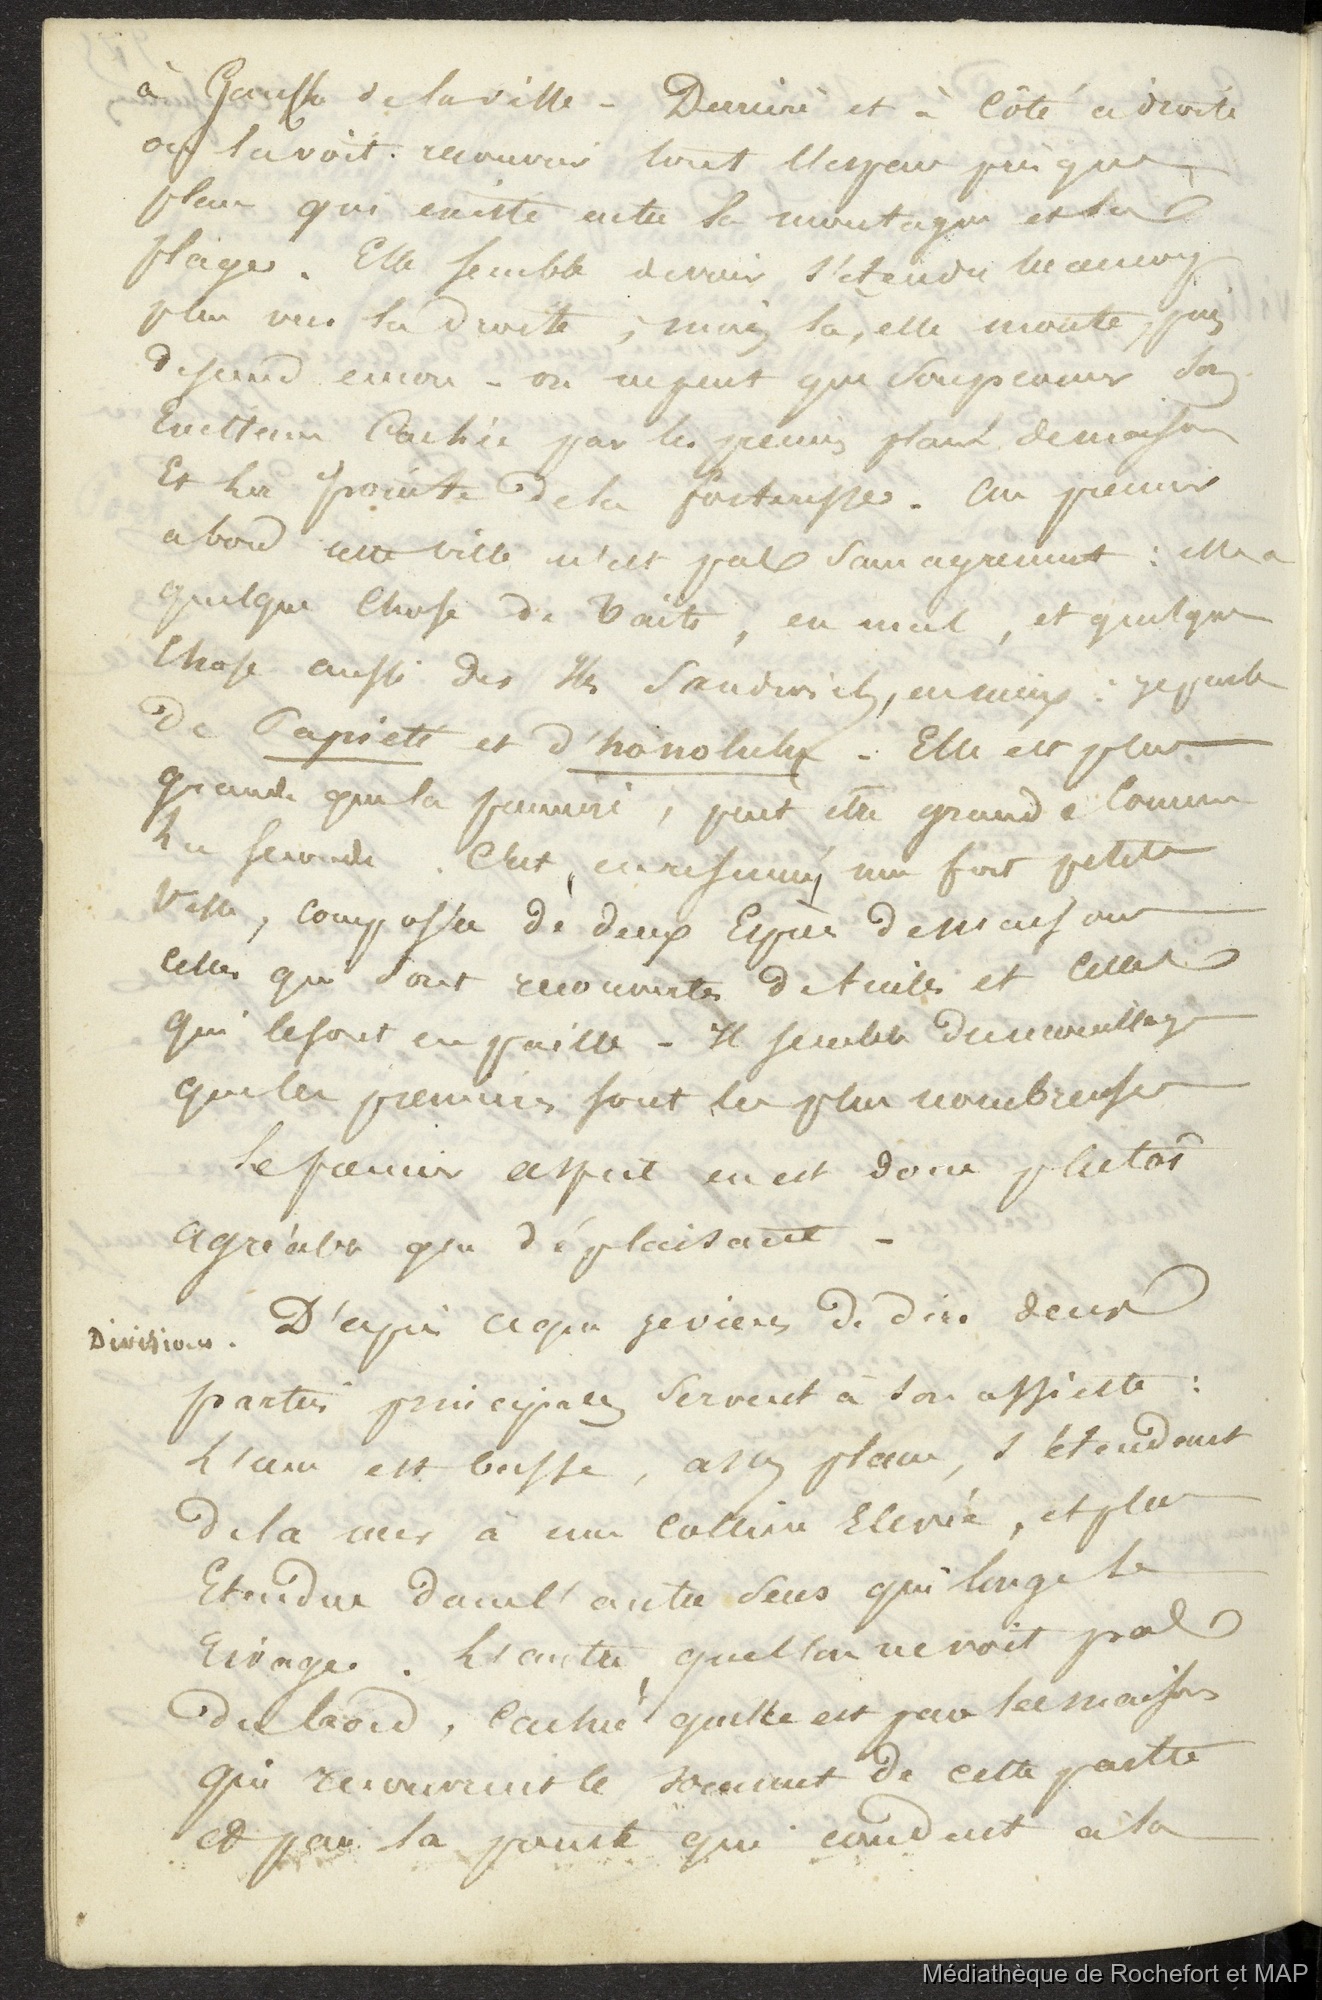 à Gauche de la ville - Derrière et à Côté a droite
on la voit recouvrir tout l'espace presque
plan qui existe entre la montagne et la
plage. Elle semble devoir s'étendre beaucoup
plus vers la droite, mais la, elle monte, puis
descend encore - on ne peut que soupconner son
Exittence Cachée par les premiers plans de maisons
Et la pointe de la forteresse. Au premier
abord cette ville n'est pas sans agrément : elle a
quelque Chose de Taïti, en mal, et quelque
Chose aussi des Iles Sandwich, en mieux : je parle
de Papiete et d'honolulu - Elle est plus
grande que la première, peut être grande comme
La seconde. C'est, en résumé, une fort petite
Ville, composée de deux Espèces de maisons
celles qui sont recouvertes de tuiles et celles
qui le sont en paille - Il semble du mouillage
que les premières sont les plus nombreuses
Le premier aspect en est donc plutôt
agréable que déplaisant -
Divisions. D'après ce que je viens de dire deux
parties principales servent à son assiette :
L'une est basse, assez plane, s'étendant
de la mer à une colline Elevée, et plus
Etendue dans l'autre sens qui longe le
Rivage. L'autre, que l'on ne voit pas
du bord, cachée qu'elle est par les maisons
qui recouvrent le sommet de cette partie
et par la pointe qui conduit à la
Médiathèque de Rochefort et MAP